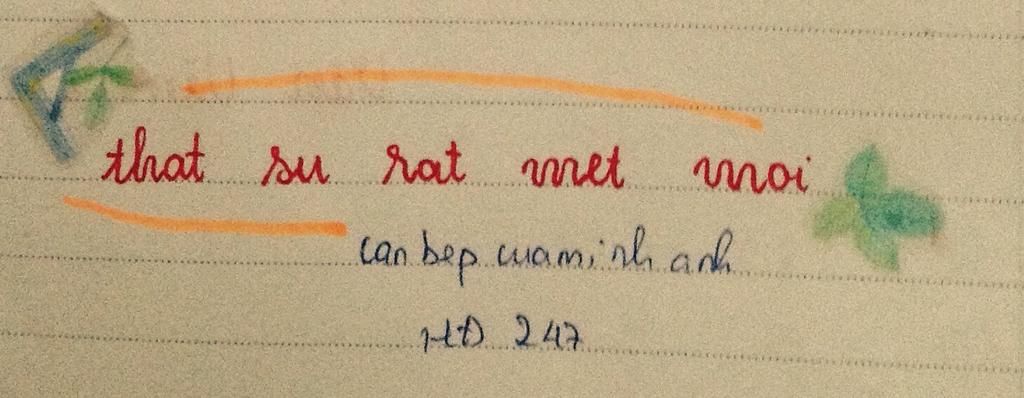 that su rat met moi
can bep cuaminh anh
HD 247